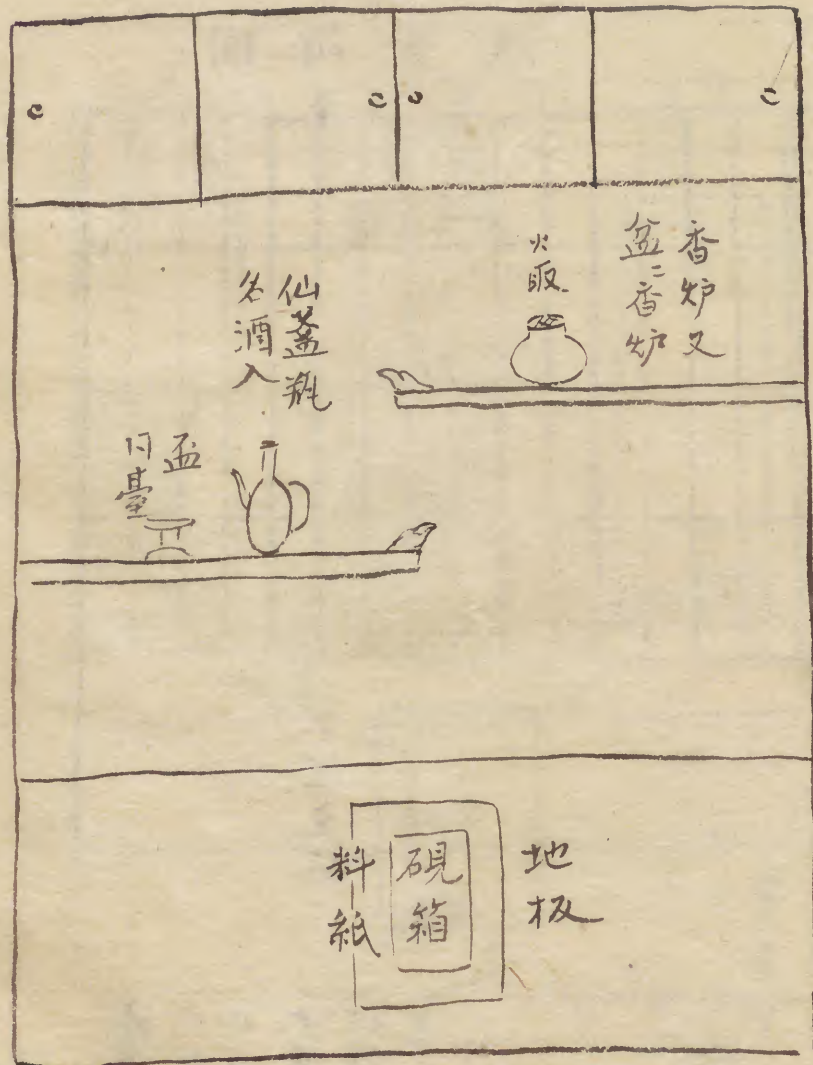 香炉又
盆ニ香炉
火取
仙盞瓶
名酒入
盃
同臺
地板
硯箱
料紙